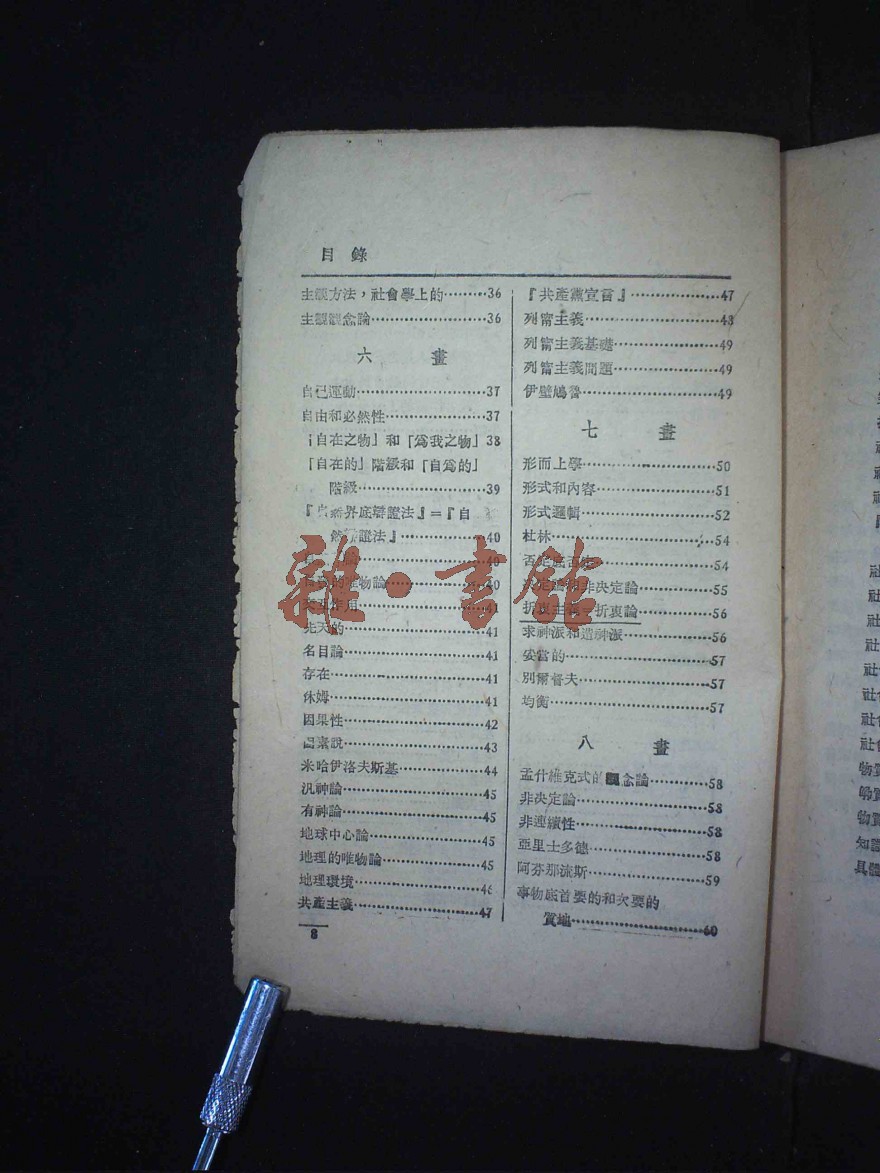 目錄
主觀方法，社會學上的………36
主觀觀念論………36
六 畫
自己運動………37
自由和必然性………37
「自在之物」和「爲我之物」38
「自在的」階級和「自爲的」
階級………39
『自然界底辯證法』＝『自
然辯證法』………40
………40
的唯物論………40
交互作用………41
先天的………41
名目論………41
存在………41
休姆………41
因果性………42
因素說………43
米哈伊洛夫斯基………44
汎神論………45
有神論………45
地球中心論………45
地理的唯物論………45
地理環境………46
共產主義………47
8
『共產黨宣言』………47
列甯主義………48
列甯主義基礎………49
列甯主義問題………49
伊壁鳩魯………49
七 畫
形而上學………50
形式和內容………51
形式邏輯………52
杜林………54
否定底否定………54
決定論和非決定論………55
折衷主義＝折衷論………56
求神派和造神派………56
妥當的………57
別爾督夫………57
均衡………57
八 畫
孟什維克式的觀念論………58
非決定論………58
非連續性………58
亞里士多德………58
阿芬那流斯………59
事物底首要的和次要的
質地………60
雜·書館